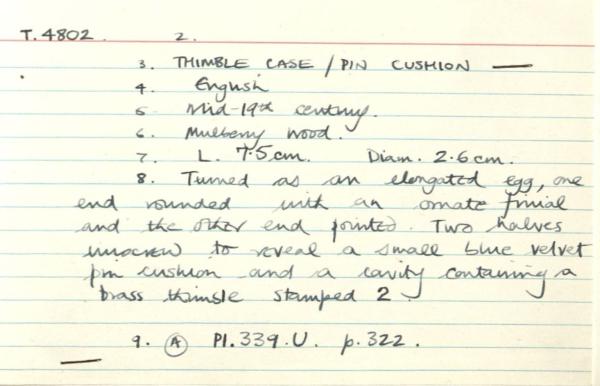 T.4802. 2.
3. THIMBLE CASE / PIN CUSHION —
4. English
5. Mid-19th century.
6. Mulberry wood.
7. L. 7.5cm. Diam. 2.6cm.
8. Turned as an elongated egg, one
end rounded with an ornate finial
and the other end pointed. Two halves
unscrew to reveal a small blue velvet
pin cushion and a cavity containing a
brass thimble stamped 2.
9. (A) Pl.339.U. p.322.